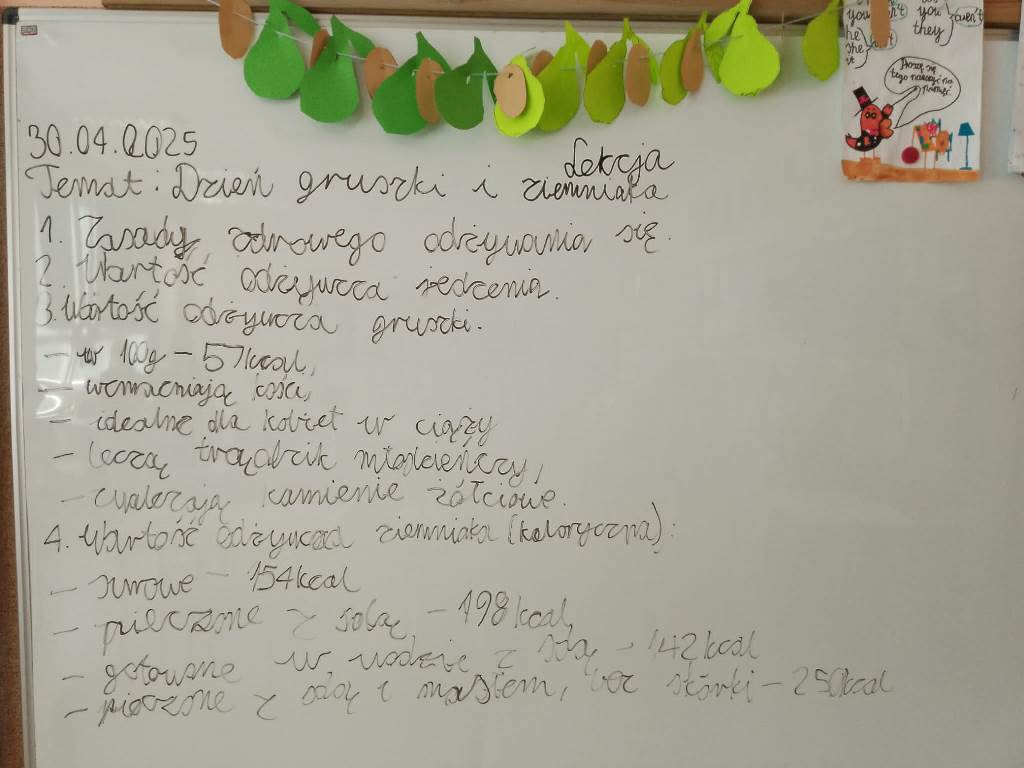 you
they
aren't
he
she
it
Proszę się
tego nauczyć na
pamięć
30.04.2025
Lekcja
Temat: Dzień gruszki i ziemniaka
1. Zasady zdrowego odżywiania się.
2. Wartość odżywcza jedzenia.
3. Wartość odżywcza gruszki.
- w 100g - 57kcal,
- wzmacniają kości,
- idealne dla kobiet w ciąży
- leczą trądzik młodzieńczy,
- zwalczają kamienie żółciowe.
4. Wartość odżywcza ziemniaka (kaloryczna):
- surowe - 154kcal
- pieczone z solą - 198kcal,
- gotowane w wodzie z solą - 142kcal
- pieczone z solą i masłem, bez skórki - 250kcal